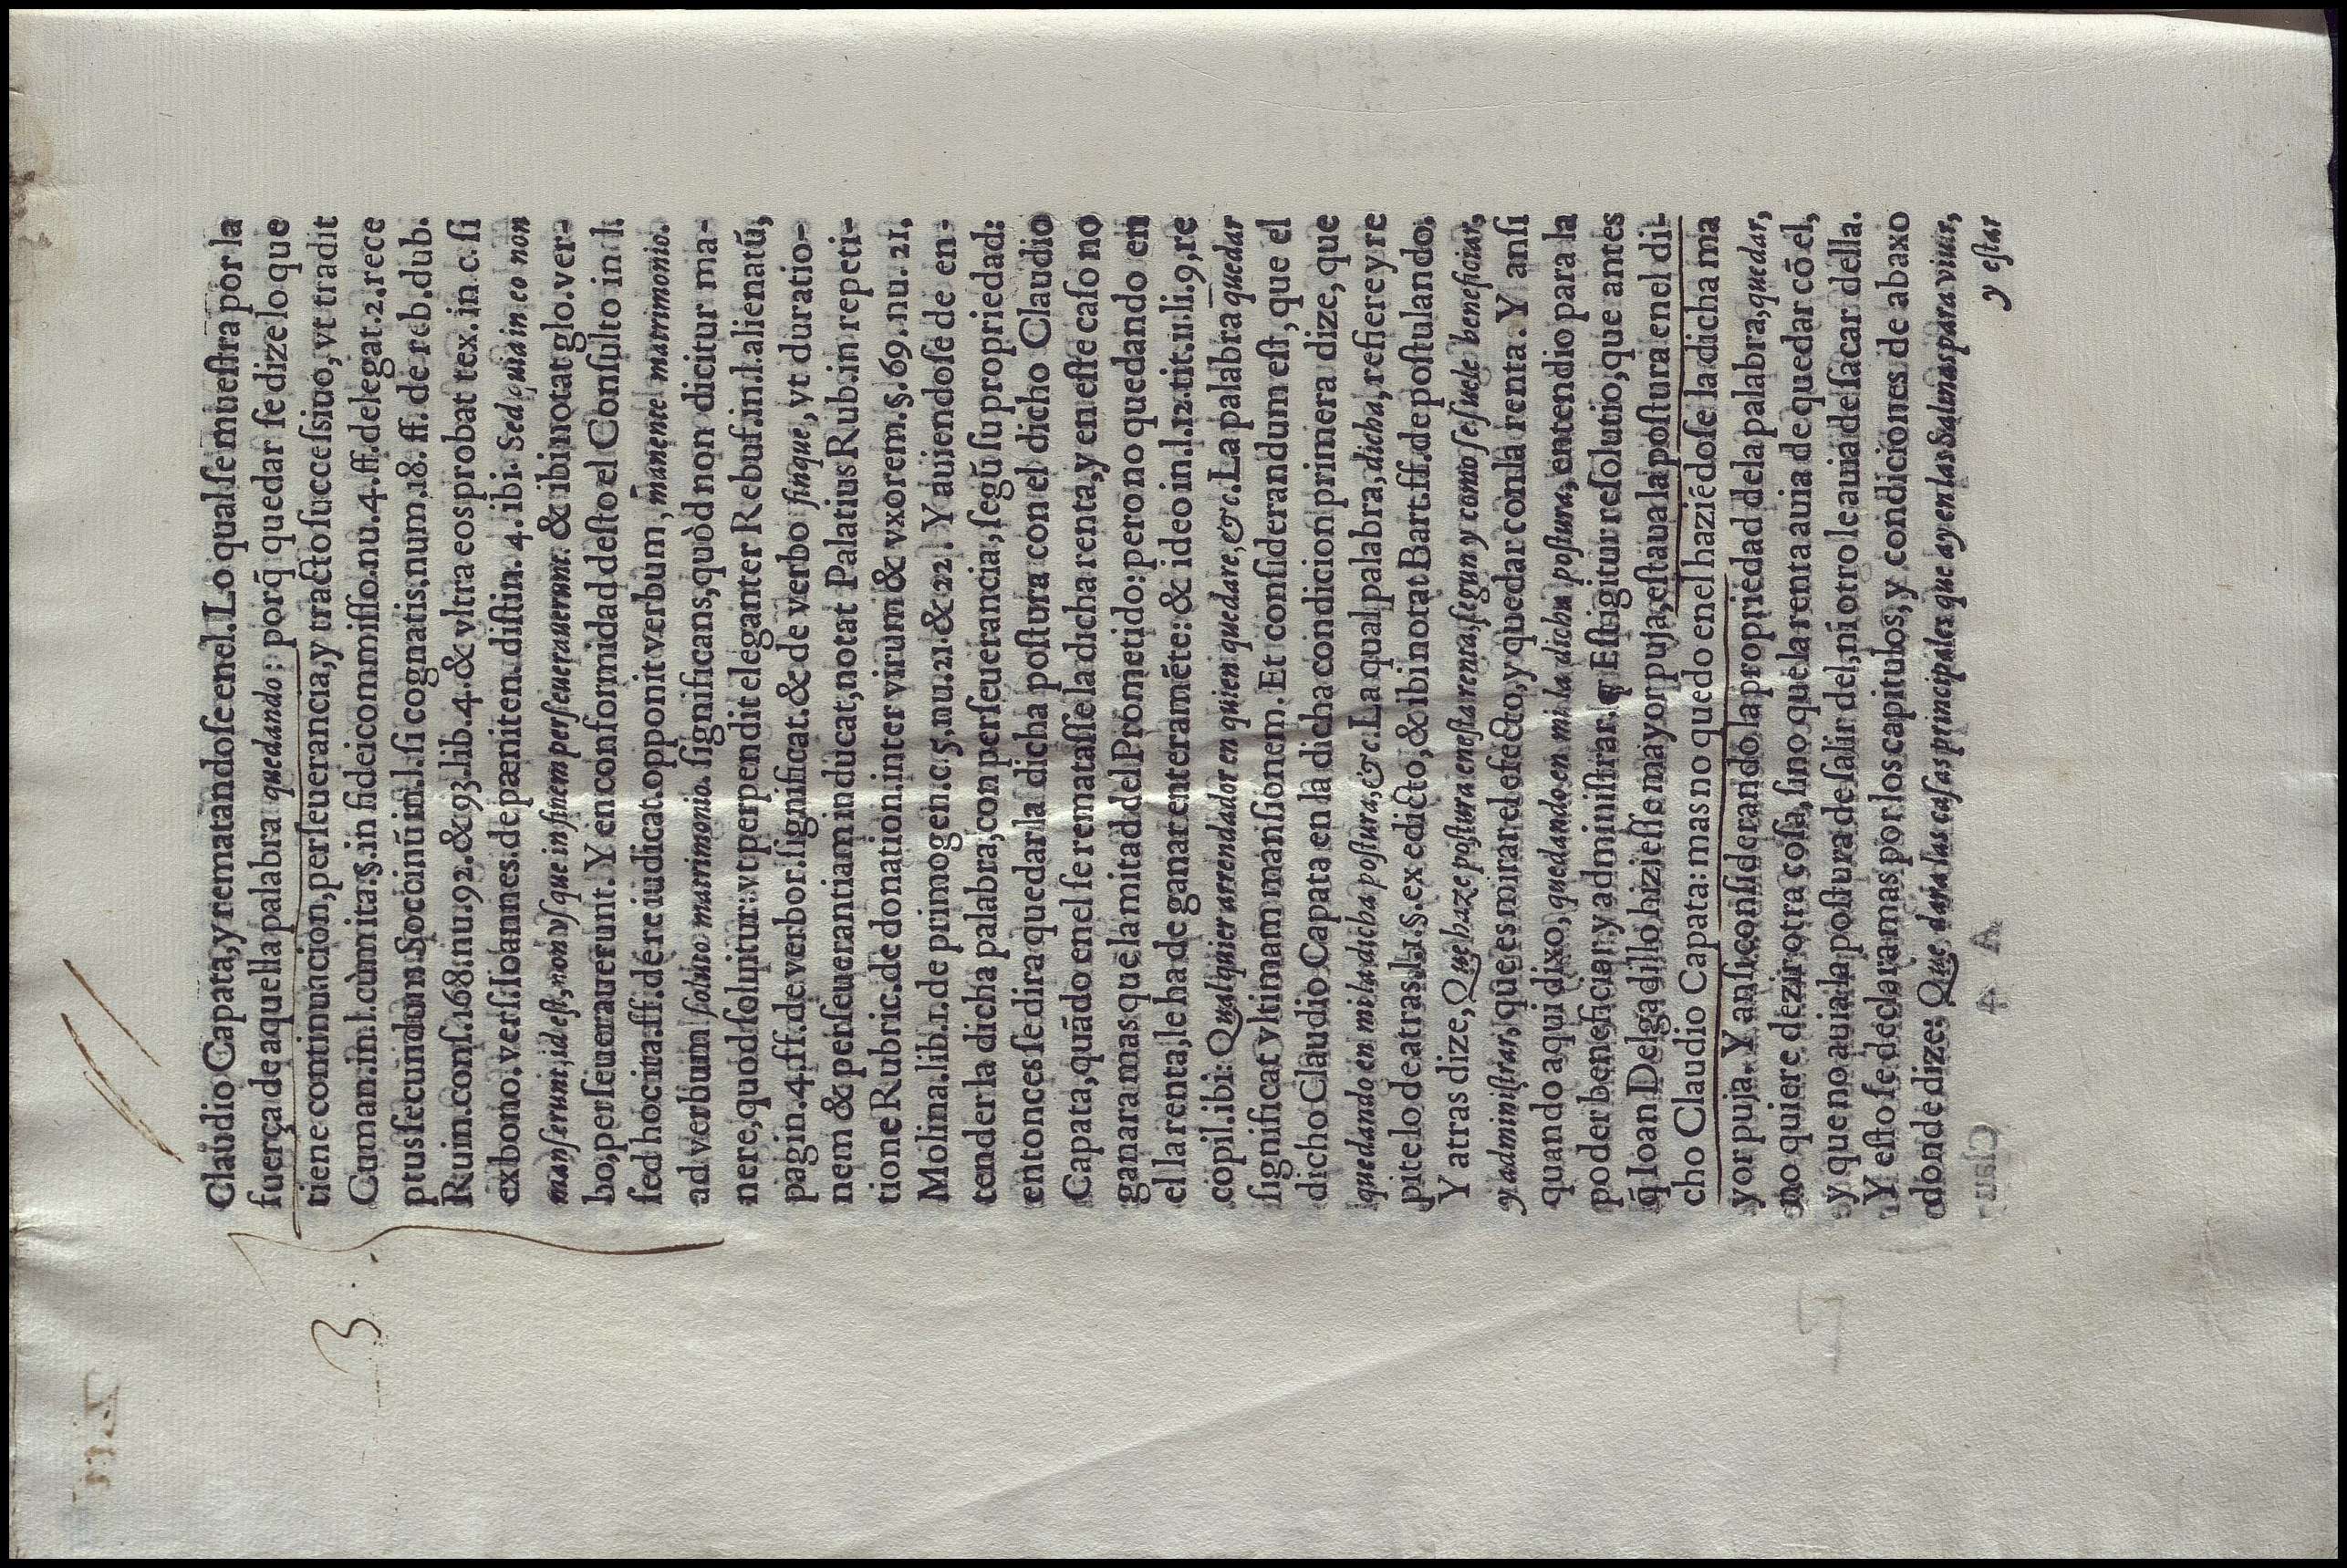 Claudio Capata, y rematandose en el. Lo qual se muestra por la
fuerça de aquella palabra quedando: porq̄ quedar se dize lo que
tiene continuacion, perseuerancia, y tracto succesiuo, vt tradit
Cuman. in l. cùm ita. §. in fideicommisso. nu. 4. ff. de legat. 2. rece
ptus secundum Soccinū in l. si cognatis, num. 18. ff. de reb. dub.
Ruin. cons. 168. nu. 92. & 93. lib. 4. & vltra eos probat tex. in c. si
ex bono. vers. Ioannes. de pæniten. distin. 4. ibi. Sed quia in eo non
manserunt, id est, non vsque in finem perseuerauerunt. & ibi notat glo. ver-
bo, perseuerauerunt. Y en conformidad desto el Consulto in l.
sed hoc ita. ff. de re iudicat. opponit verbum, manente matrimonio.
ad verbum soluto matrimonio. significans, quòd non dicitur ma-
nere, quod soluitur: vt perpendit eleganter Rebuf. in l. alienatū,
pagin. 4. ff. de verbor. significat. & de verbo sinque, vt duratio-
nem & perseuerantiam inducat, notat Palatius Rub. in repeti-
tione Rubric. de donation. inter virum & vxorem. §. 69. nu. 21.
Molina. lib. 1. de primogen. c. 5. nu. 21. & 22. Y auiendose de en-
tender la dicha palabra, con perseuerancia, segū su propriedad:
entonces se dira quedar la dicha postura con el dicho Claudio
Capata, quādo en el se rematasse la dicha renta, y en esse caso no
ganara mas que la mitad del Prometido: pero no quedando en
el la renta, le ha de ganar enteramēte: & ideo in l. 12. tit. 11. li. 9. re
copil. ibi: Qualquier arrendador en quien quedare, &c. La palabra quedar
significat vltimam mansionem. Et considerandum est, que el
dicho Claudio Capata en la dicha condicion primera dize, que
quedando en mi la dicha postura, &c. La qual palabra, dicha, refiere y re
pite lo de atras. l. 1. §. ex edicto, & ibi notat Bart. ff. de postulando.
Y atras dize, Que haze postura en esta renta, segun y como se suele beneficiar,
y administrar, que es mirar el efecto, y quedar con la renta. Y ansi
quando aqui dixo, quedando en mi la dicha postura, entendio para la
poder beneficiar y administrar. ¶ Est igitur resolutio, que antes
q̄ Ioan Delgadillo hiziesse mayor puja, estaua la postura en el di-
cho Claudio Capata: mas no quedo en el haziēdose la dicha ma
yor puja. Y ansi considerando la propriedad de la palabra, quedar,
no quiere dezir otra cosa, sino que la renta auia de quedar cō el,
y que no auia la postura de salir del, ni otro le auia de sacar della.
Y esto se declara mas por los capitulos, y condiciones de abaxo
donde dize: Que daria las casas principales que ay en las Salinas para viuir,
y estar
3.